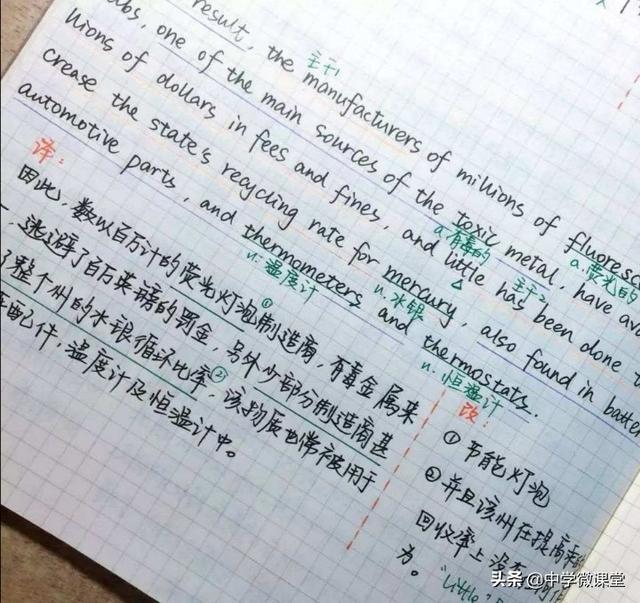 result, the manufacturers of millions of
主干1
one of the main sources of the toxic metal, have
a.有毒的
a.荧光的
llions of dollars in fees and fines, and little has been done
主干2
crease the state's recycling rate for mercury, also found in
n.水银
automotive parts, and thermometers and thermostats.
n.温度计
n.恒温计
译:
因此,数以百万计的荧光灯泡①制造商,有毒金属来
逃避了百万英镑的罚金,另外少部分制造商甚
整个州的水银循环比率②,该物质也常被用于
配件,温度计及恒温计中。
改:
①节能灯泡
②并且该州在提高
回收率上没有
为。
"Little"
头条 @中学微课堂